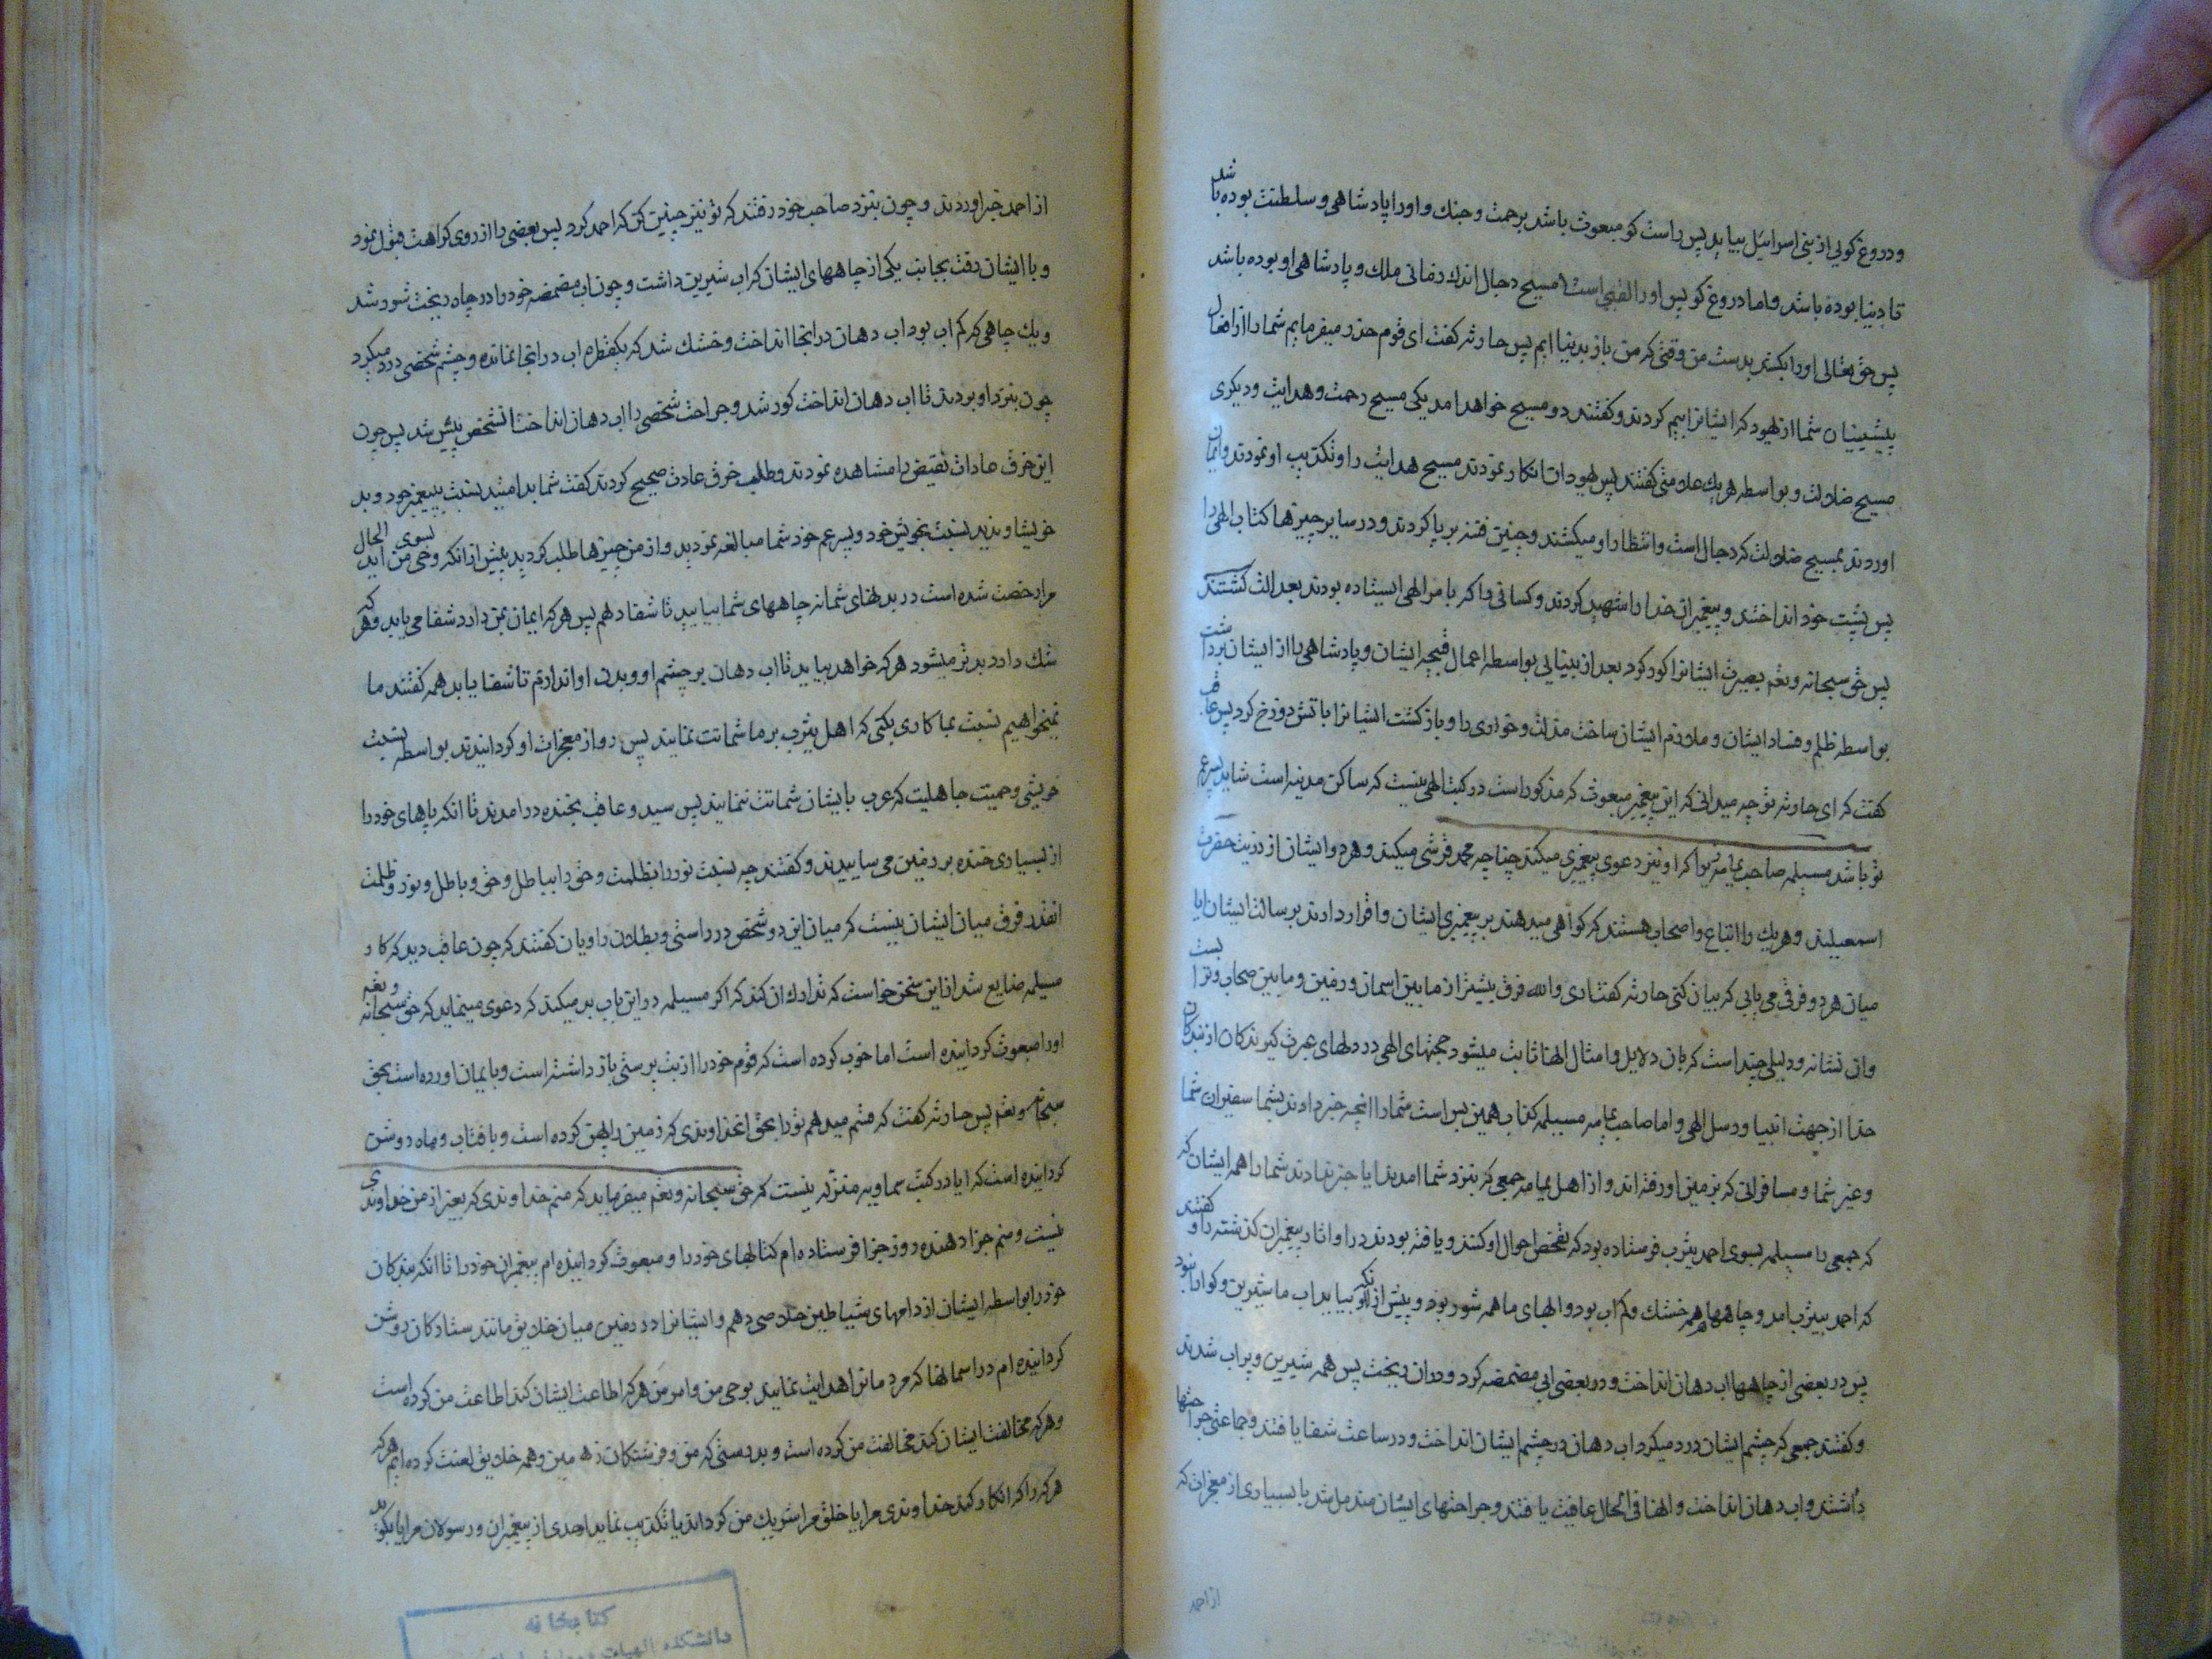 ودروغ کویی از بنی اسرائیل بیاید پس راست کو مبعوث باشد برحمت و جنك و اورا پادشاهی و سلطنت بوده باشد
تا دنیا بوده باشد و اما دروغ کو پس اورا لقبی است مسیح دجال اندك زمانی ملك و پادشاهی او بوده باشد
پس حق تعالی اورا بکشد بدست من وقتی که من باز بدنیا ایم پس حارثه کفت ای قوم حذر میفرمایم شما را از افعال
پیشینیان شما از یهود که ایشانرا بیم کردند و کفتند دو مسیح خواهد امد یکی مسیح رحمت و هدایت و دیکری
مسیح ضلالت و بواسطه هریك علامتی کفتند پس یهودان انکار نمودند مسیح هدایت را و تکذیب او نمودند و ایمان
اوردند بمسیح ضلالت که دجال است و انتظار او میکشند و چنین فتنه برپا کردند و در سایر چیزها کتاب الهی را
پس پشت خود انداختند و پیغمبران خدا را شهید کردند و کسانی را که بامر الهی ایستاده بودند بعدالت کشتند
پس حق سبحانه و تعم بصیرت ایشانرا کور کرد بعد از بینایی بواسطه اعمال قبیحه ایشان و پادشاهی را از ایشان برداشت
بواسطه ظلم و فساد ایشان و ملازم ایشان ساخت مذلت و خواری را و بازکشت ایشانرا باتش دوزخ کرد پس عاقب
کفت که ای حارثه تو چه میدانی که این پیغمبر مبعوث که مذکور است در کتب الهی نیست که ساکن مدینه است شاید پسر عم
تو باشد مسیلمه صاحب یمامه زیرا که او نیز دعوی پیغمبری میکند چنانچه محمد قرشی میکند و هر دو ایشان از ذریت حضرت
اسمعیلند و هریك را اتباع و اصحاب هستند که کواهی میدهند بر پیغمبری ایشان و اقرار دارند برسالت ایشان ایا
میان هر دو فرقی می یابی که بیان کنی حارثه کفت اری والله فرق بیشتر از مابین اسمان و زمین و مابین سحاب و تراب است
وان نشانه و دلیلی چند است که بان دلایل و امثال انها ثابت میشود حجتهای الهی در دلهای عبرت کیرندکان از بندکان
خدا از جهت انبیا و رسل الهی و اما صاحب یمامه مسیلمه کذاب همین بس است شما را انچه خبر دادند بشما سفیران شما
و غیر شما و مسافرانی که بزمین او رفته اند و از اهل یمامه جمعی که بنزد شما امدند ایا خبر ندادند شما را همه ایشان که
که جمعی را مسیلمه بسوی احمد یثرب فرستاده بود که تفحص احوال او کنند و یافته بودند در او اثار پیغمبران کذشته را و کفتند
که احمد بیثرب امد و چاهها همه خشك و کم اب بود و ابهای ما همه شور بود و پیش از انکه او بیاید اب ما شیرین و کوارا نبود
پس در بعضی از چاهها اب دهان انداخت و در بعضی ابی مضمضه کرد و دران ریخت پس همه شیرین و پر اب شدند
و کفتند جمعی که چشم ایشان درد میکرد اب دهان در چشم ایشان انداخت و در ساعت شفا یافتند و جماعتی جراحتها
داشتند و اب دهان انداخت و انها فی الحال عافیت یافتند و جراحتهای ایشان مندمل شد با بسیاری از معجزات که
از احمد
از احمد خبر اوردند و چون بنزد صاحب خود رفتند که تو نیز چنین کن که احمد کرد پس بعضی را از روی کراهت قبول نمود
و با ایشان رفت بجانب یکی از چاههای ایشان که اب شیرین داشت و چون اب مضمضه خود را در چاه ریخت شور شد
و یك چاهی که کم اب بود اب دهان در انجا انداخت و خشك شد که یکقطره اب در انجا نمانده و چشم شخصی درد میکرد
چون بنزد او بردند تا اب دهان انداخت کور شد و جراحت شخصی را اب دهان انداخت انشخص پیس شد پس چون
این خرق عادات نقیض را مشاهده نمودند و طلب خرق عادت صحیح کردند کفت شما بد امتید نسبت بپیغمبر خود و بد
خویشاوندید نسبت بخویش خود و پسر عم خود شما مبالغه نمودید و از من چیزها طلب کردید پیش از انکه وحی من اید بسوی الحال
مرا رخصت شده است در بدنهای شما نه چاههای شما بیایید تا شفا دهم پس هر که ایمان بمن دارد شفا می یابد و هر که
شك دارد بدتر میشود هر که خواهد بیاید تا اب دهان بر چشم او و بدن او اندازم تا شفا یابد همه کفتند ما
نمیخواهیم نسبت بما کاری بکنی که اهل یثرب بر ما شماتت نمایند پس رو از معجزات او کردانیدند بواسطه نسبت
خویشی و حمیت جاهلیت که عرب بایشان شماتت ننمایند پس سید و عاقب بخنده درامدند تا انکه پاهای خود را
از بسیاری خنده بر زمین می ساییدند و کفتند چه نسبت نور را بظلمت و حق را بباطل و حق و باطل و نور و ظلمت
انقدر فرق میان ایشان نیست که میان این دو شخص در راستی و بطلان راویان کفتند که چون عاقب دید که کار
مسیلمه ضایع شد از این سخن خواست که تدارك ان کند که اکر مسیلمه در این باب بد میکند که دعوی مینماید که حق سبحانه و تعم
اورا مبعوث کردانیده است اما خوب کرده است که قوم خود را از بت پرستی باز داشته است و بایمان اورده است بحق
سبحانه و تعم پس حارثه کفت که قسم میدهم تو را بحق انخداوندی که زمین را پهن کرده است و بافتاب و ماه روشن
کردانیده است که ایا در کتب سماویه منزله نیست که حق سبحانه و تعم میفرماید که منم خداوندی که بغیر از من خداوندی
نیست و منم جزا دهنده روز جزا فرستاده ام کتابهای خود را و مبعوث کردانیده ام پیغمبران خود را تا انکه بندکان
خود را بواسطه ایشان از دامهای شیاطین خلاصی دهم و ایشانرا در زمین میان خلایق مانند ستارکان روشن
کردانیده ام در اسمانها که مردمانرا هدایت نمایند بوحی من و امر من هر که اطاعت ایشان کند اطاعت من کرده است
و هر که مخالفت ایشان کند مخالفت من کرده است و بدرستی که من و فرشتکان زمین و همه خلایق لعنت کرده ایم هر که
هر که را که انکار کند خداوندی مرا یا خلق مرا شریك من کرداند یا تکذیب نماید احدی از پیغمبران و رسولان مرا یا بکوید
کتابخانه
دانشکده الهیات